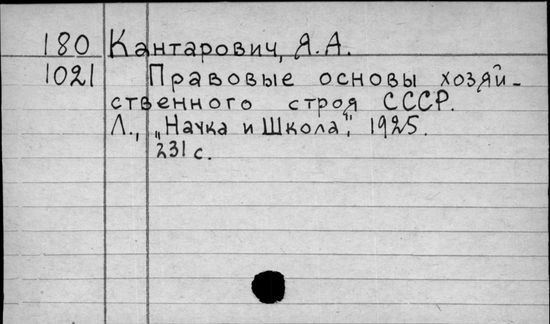 180 Кантарович, Я.А.
1021 Правовые основы хозяй-
ственного строя СССР.
Л., „Наука и Школа", 1925.
231 с.